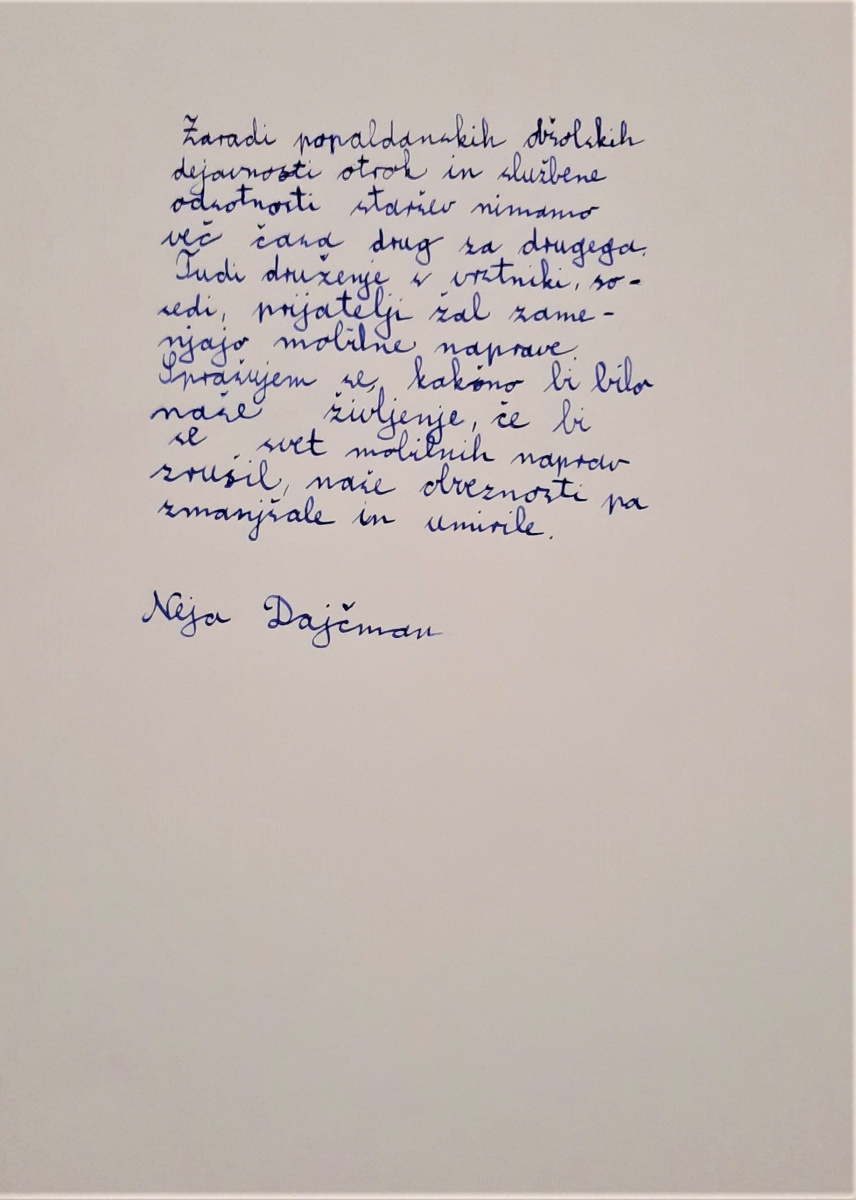 Zaradi popaldanskih obšolskih
dejavnosti otrok in službene
odsotnosti staršev nimamo
več časa drug za drugega.
Tudi druženje s vrstniki, so-
sedi, prijatelji žal zame-
njajo mobilne naprave.
Sprašujem se, kakšno bi bilo
naše življenje, če bi
se svet mobilnih naprav
zrušil, naše obveznosti pa
zmanjšale in umirile.
Neja Dajčman